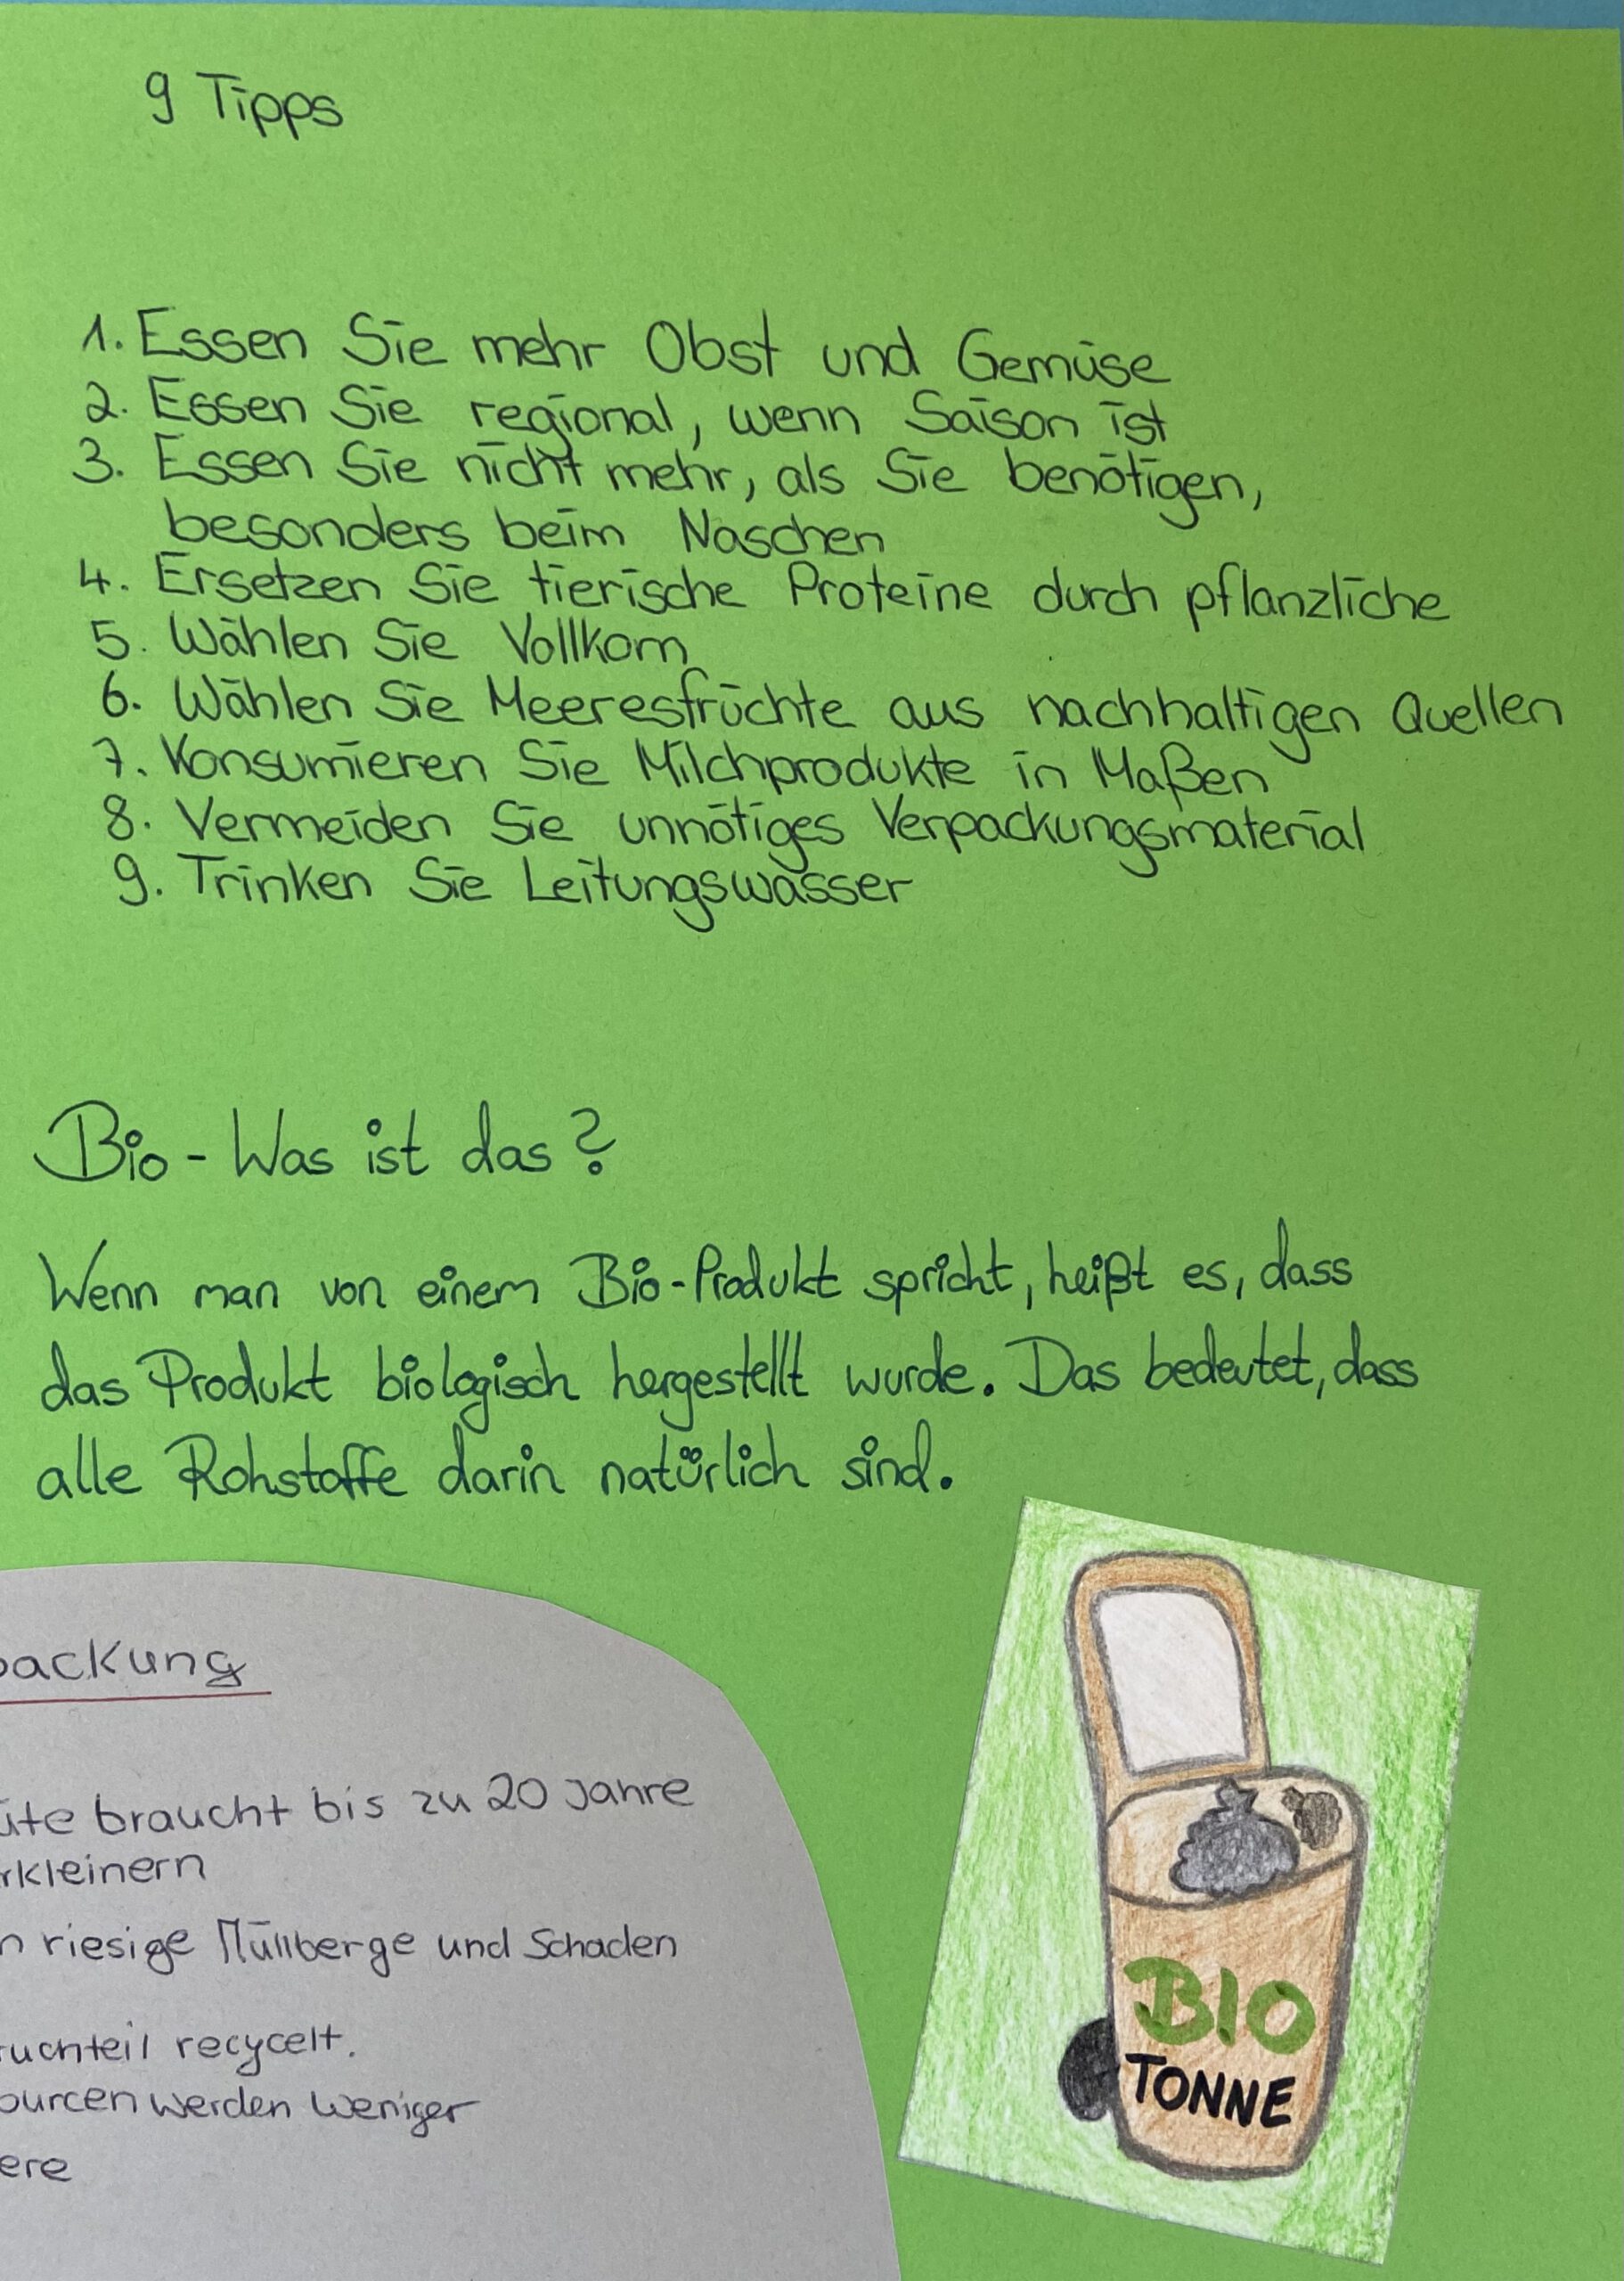 9 Tipps
1. Essen Sie mehr Obst und Gemüse
2. Essen Sie regional, wenn Saison ist
3. Essen Sie nicht mehr, als Sie benötigen,
besonders beim Naschen
4. Ersetzen Sie tierische Proteine durch pflanzliche
5. Wählen Sie Vollkorn
6. Wählen Sie Meeresfrüchte aus nachhaltigen Quellen
7. Konsumieren Sie Milchprodukte in Maßen
8. Vermeiden Sie unnötiges Verpackungsmaterial
9. Trinken Sie Leitungswasser
Bio - Was ist das?
Wenn man von einem Bio-Produkt spricht, heißt es, dass
das Produkt biologisch hergestellt wurde. Das bedeutet, dass
alle Rohstoffe darin natürlich sind.
packung
üte braucht bis zu 20 Jahre
rkleinern
n riesige Müllberge und Schaden
ruchteil recycelt.
ourcen werden weniger
ere
BIO
TONNE